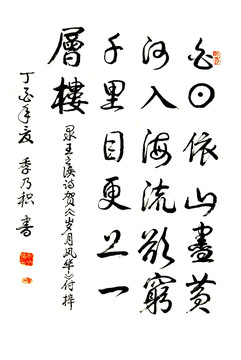 白日依山盡黄
河入海流欲窮
千里目更上一
層樓
录王之涣诗贺《岁月风华》付梓
丁酉年夏 季乃积 書